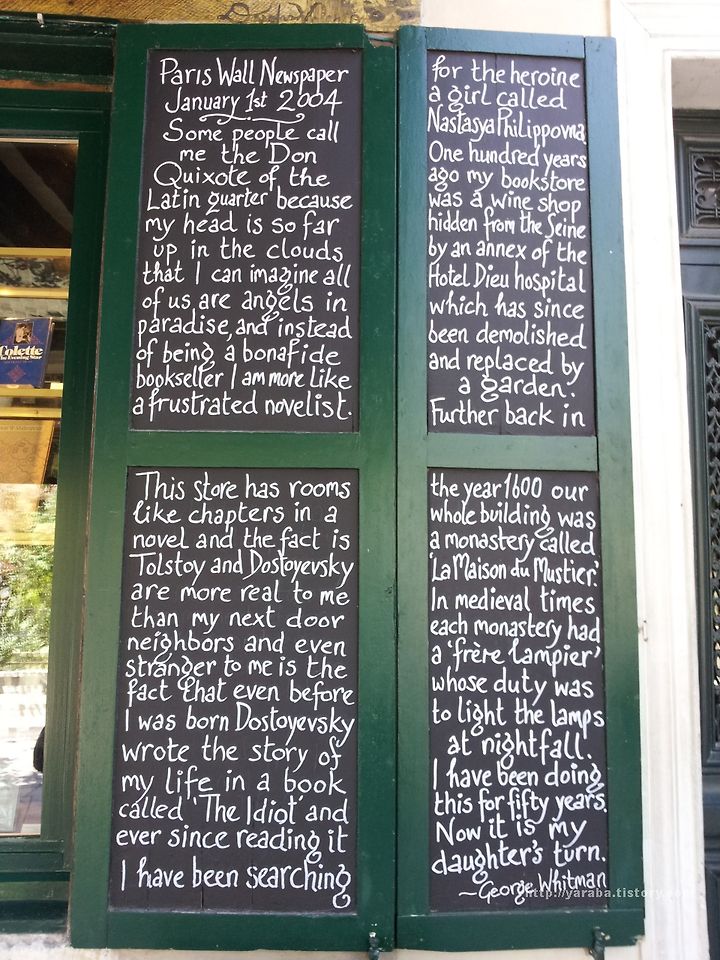 Paris Wall Newspaper
January 1st 2004
Some people call
me the Don
Quixote of the
Latin quarter because
my head is so far
up in the clouds
that I can imagine all
of us are angels in
paradise, and instead
of being a bonafide
bookseller I am more like
a frustrated novelist.
This store has rooms
like chapters in a
novel and the fact is
Tolstoy and Dostoyevsky
are more real to me
than my next door
neighbors and even
stranger to me is the
fact that even before
I was born Dostoyevsky
wrote the story of
my life in a book
called 'The Idiot' and
ever since reading it
I have been searching
for the heroine
a girl called
Nastasya Philippovna.
One hundred years
ago my bookstore
was a wine shop
hidden from the Seine
by an annex of the
Hotel Dieu hospital
which has since
been demolished
and replaced by
a garden.
Further back in
the year 1600 our
whole building was
a monastery called
'La Maison du Mustier'.
In medieval times
each monastery had
a 'frère lampier'
whose duty was
to light the lamps
at nightfall.
I have been doing
this for fifty years.
Now it is my
daughter's turn.
~George Whitman
http://yaraba.tistory.
Colette